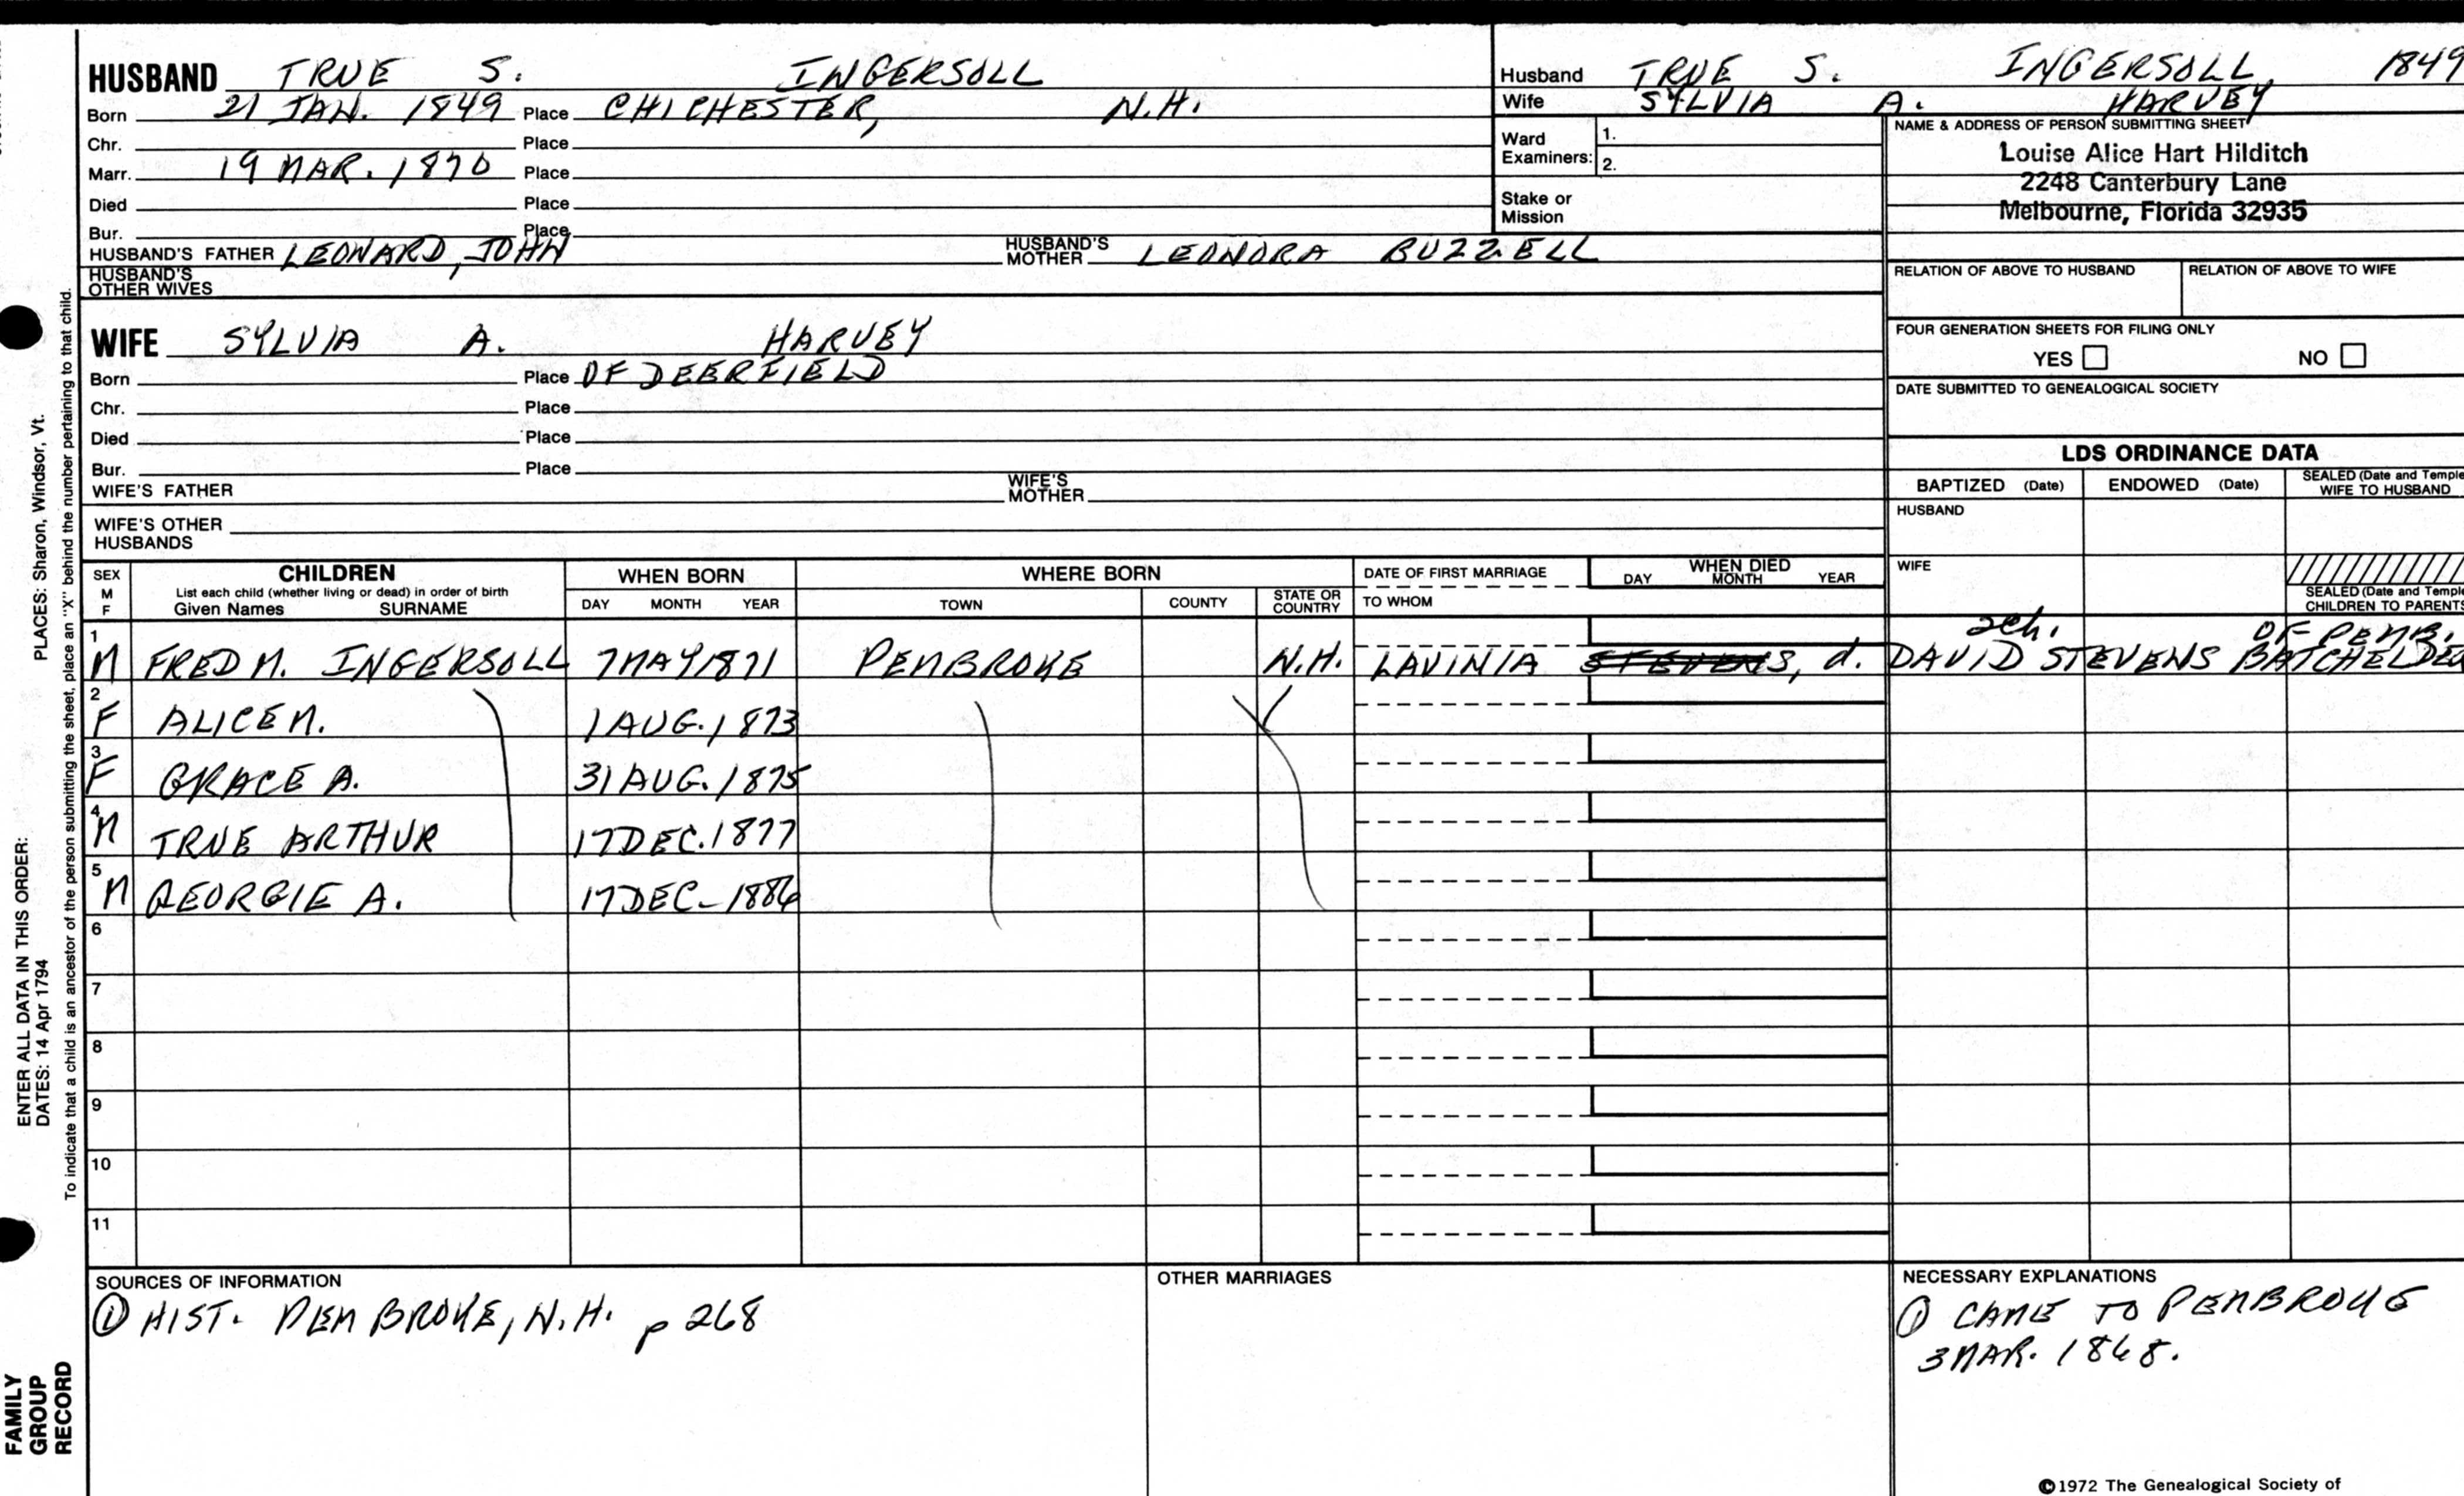 HUSBAND TRUE S. INGERSOLL
Born 21 JAN. 1849 Place CHICHESTER, N.H.
Chr. Place
Marr. 19 MAR. 1870 Place
Died Place
Bur. Place
HUSBAND'S FATHER LEONARD, JOHN HUSBAND'S MOTHER LEONORA BUZZELL
HUSBAND'S OTHER WIVES
WIFE SYLVIA A. HARVEY
Born Place OF DEERFIELD
Chr. Place
Died Place
Bur. Place
WIFE'S FATHER WIFE'S MOTHER
WIFE'S OTHER HUSBANDS
Husband TRUE S. INGERSOLL, 1849
Wife SYLVIA A. HARVEY
Ward Examiners: 1.
2.
Stake or Mission
NAME & ADDRESS OF PERSON SUBMITTING SHEET
Louise Alice Hart Hilditch
2248 Canterbury Lane
Melbourne, Florida 32935
RELATION OF ABOVE TO HUSBAND RELATION OF ABOVE TO WIFE
FOUR GENERATION SHEETS FOR FILING ONLY
YES NO
DATE SUBMITTED TO GENEALOGICAL SOCIETY
LDS ORDINANCE DATA
BAPTIZED (Date) ENDOWED (Date) SEALED (Date and Temple
WIFE TO HUSBAND
HUSBAND
WIFE
SEALED (Date and Temple
CHILDREN TO PARENTS
SEX M F CHILDREN WHEN BORN WHERE BORN DATE OF FIRST MARRIAGE WHEN DIED
List each child (whether living or dead) in order of birth
Given Names SURNAME DAY MONTH YEAR TOWN COUNTY STATE OR COUNTRY TO WHOM DAY MONTH YEAR
OF PEMB.
1 M FRED M. INGERSOLL 7 MAY 1871 PEMBROKE N.H. LAVINIA STEVENS, d. DAVID STEVENS BATCHELDER
2 F ALICE M. 1 AUG. 1873
3 F GRACE A. 31 AUG. 1875
4 M TRUE ARTHUR 17 DEC. 1877
5 M GEORGIE A. 17 DEC - 1886
6
7
8
9
10
11
SOURCES OF INFORMATION
① HIST. PEMBROKE, N.H. p 268
OTHER MARRIAGES
NECESSARY EXPLANATIONS
① CAME TO PEMBROKE
3 MAR. 1868.
©1972 The Genealogical Society of
PLACES: Sharon, Windsor, Vt.
ENTER ALL DATA IN THIS ORDER:
DATES: 14 Apr 1794
To indicate that a child is an ancestor of the person submitting the sheet, place an "X" behind the number pertaining to that child.
FAMILY
GROUP
RECORD